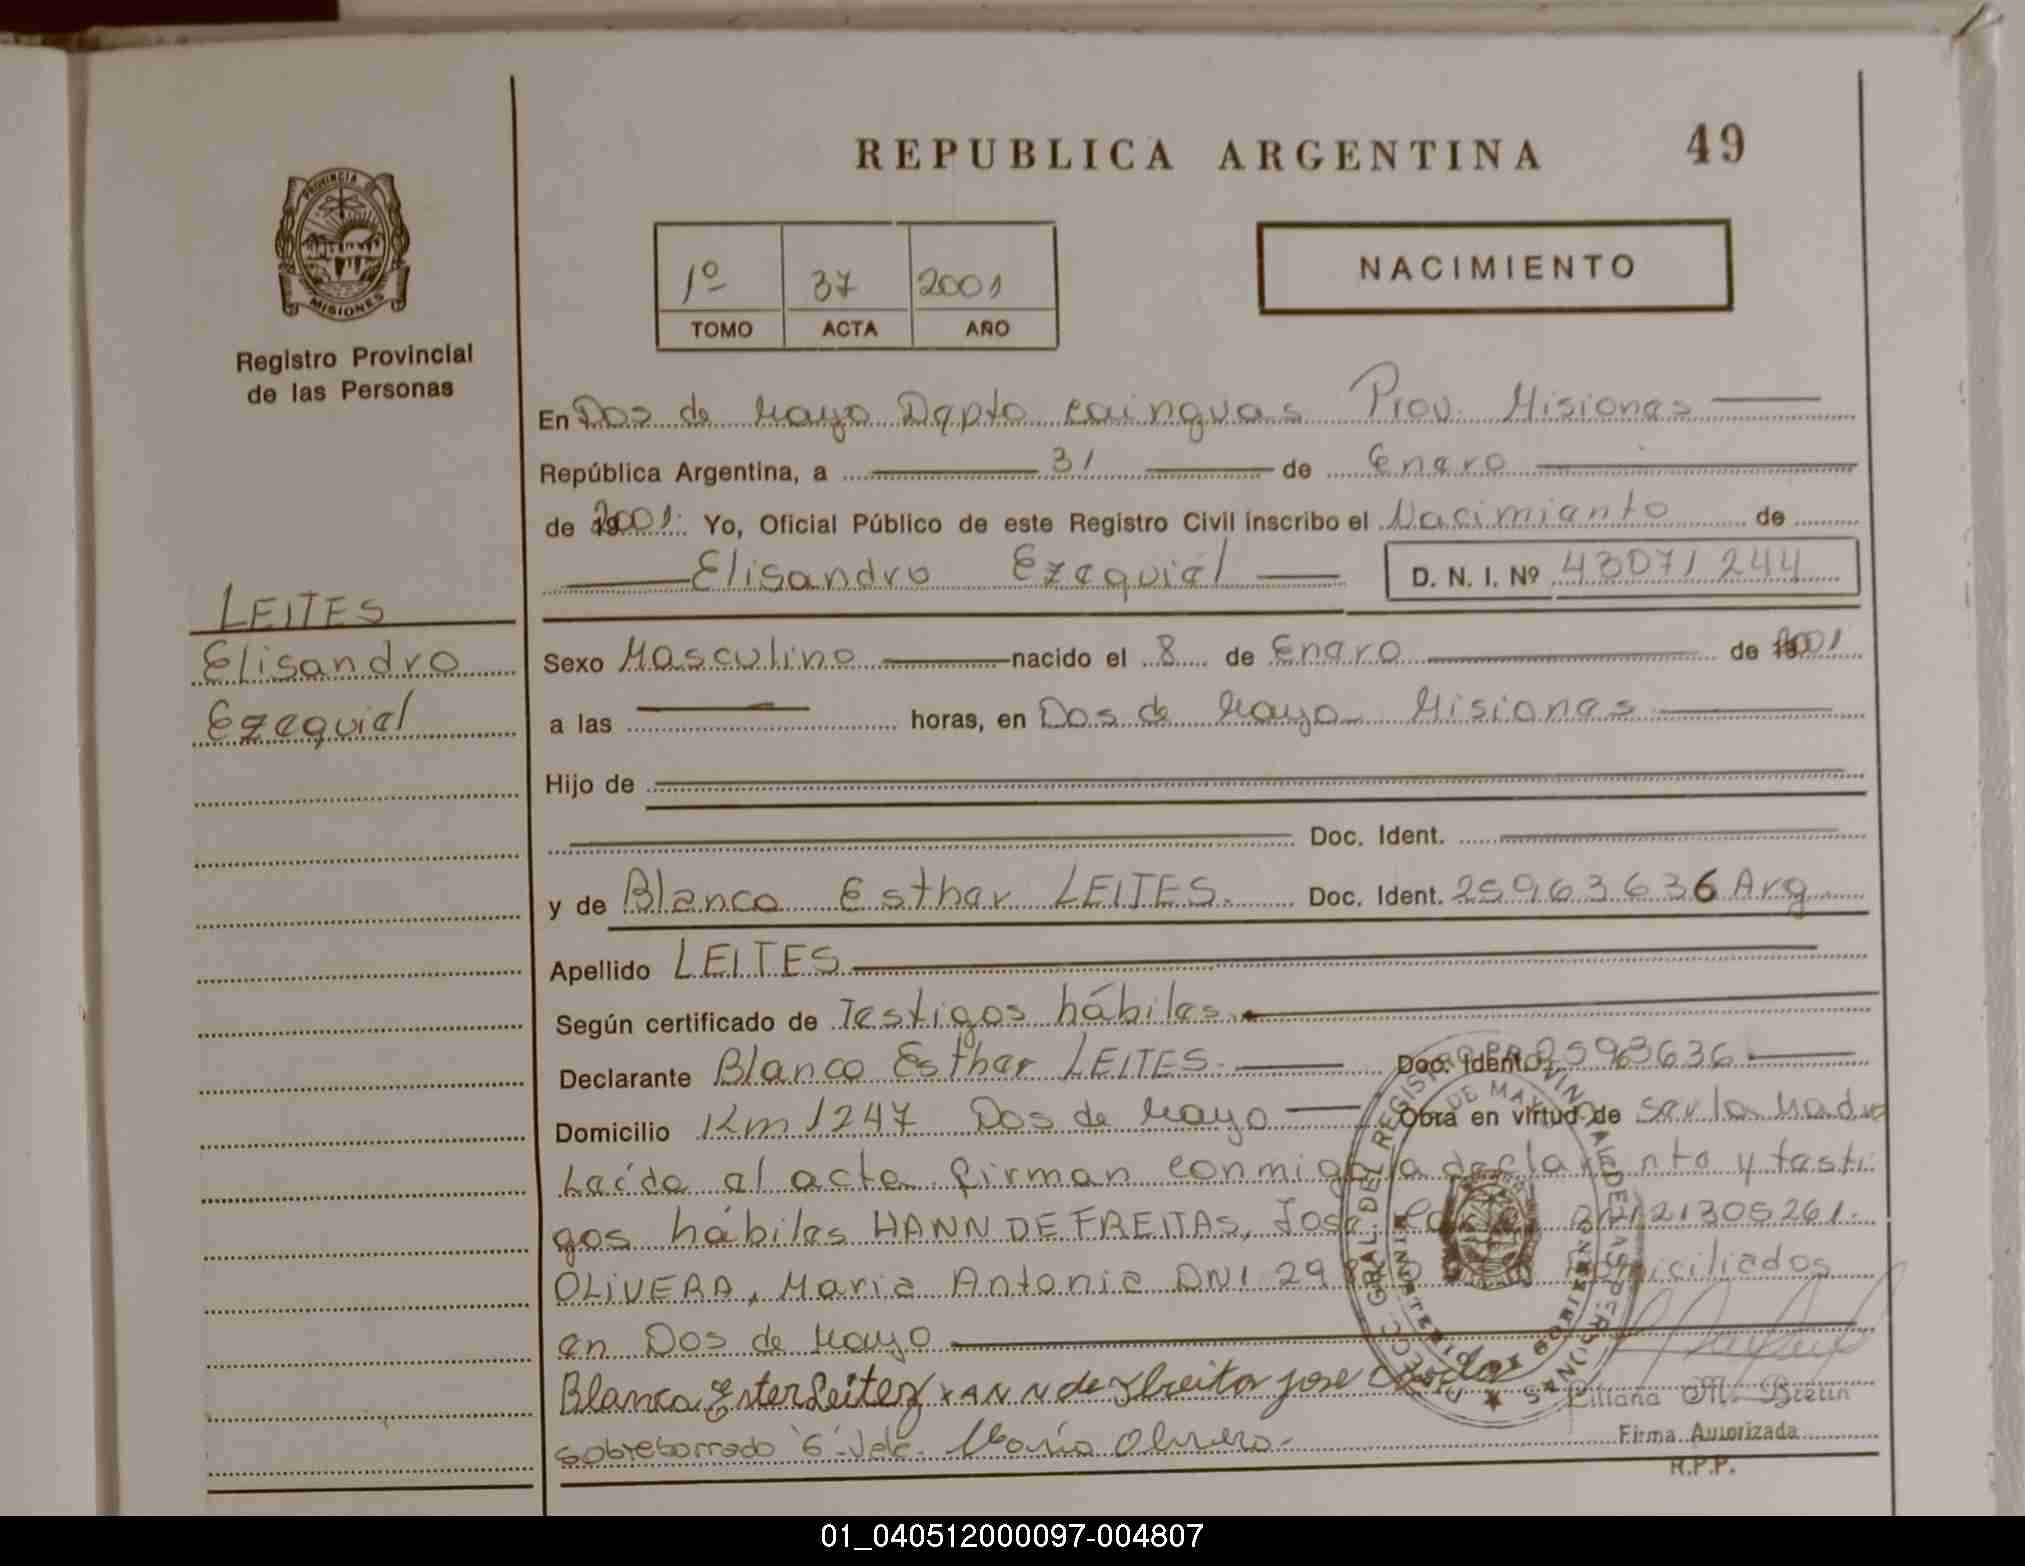 REPUBLICA ARGENTINA 49
PROVINCIA DE
MISIONES
Registro Provincial
de las Personas
1º 37 2001
TOMO ACTA AÑO
NACIMIENTO
En Dos de Mayo Depto Cainguas Prov. Misiones
República Argentina, a 31 de Enero
de 2001. Yo, Oficial Público de este Registro Civil inscribo el Nacimiento de
Elisandro Ezequiel D. N. I. Nº 43071244
LEITES
Elisandro
Ezequiel
Sexo Masculino nacido el 8 de Enero de 2001
a las horas, en Dos de Mayo Misiones
Hijo de
Doc. Ident.
y de Blanca Esther LEITES. Doc. Ident. 25963636 Arg
Apellido LEITES
Según certificado de Testigos hábiles.
Declarante Blanca Esther LEITES. Doc. Ident. 25963636
Domicilio Km 1247 Dos de Mayo Obra en virtud de ser la Madre
Leída el acta firman conmigo la declarante y testi
gos hábiles HANN DE FREITAS, José DNI 21305261.
OLIVERA, Maria Antonia DNI 29 domiciliados
en Dos de Mayo
Blanca Ester Leites José
sobreborrado "6" Vale. María Olivera
Firma Autorizada
R.P.P.
01_040512000097-004807